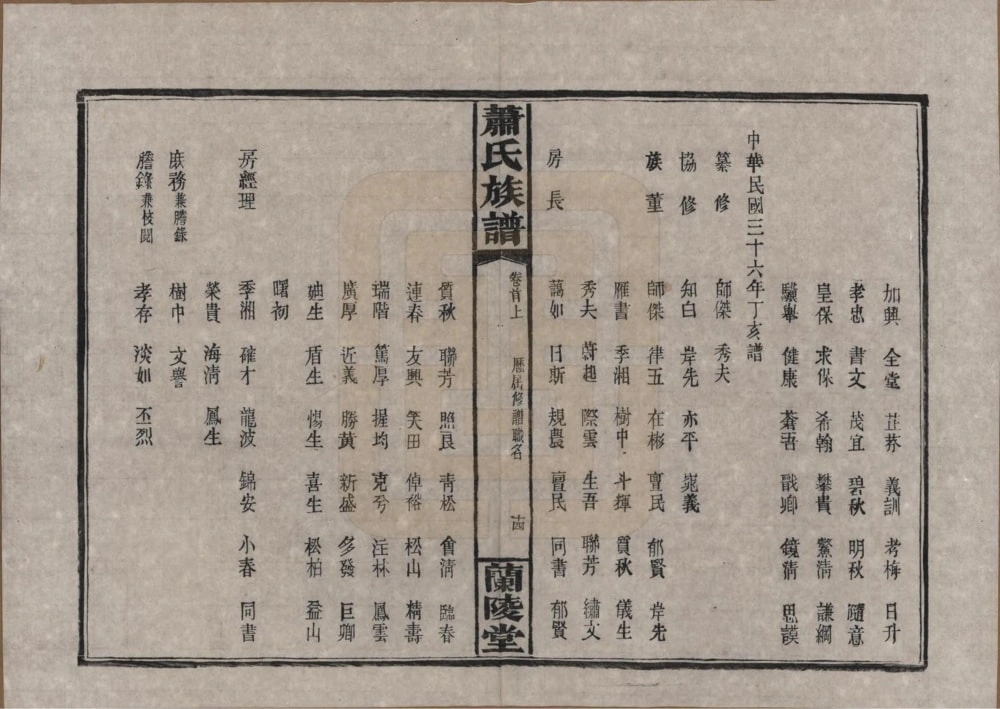 加興 全堂 芷莽 義訓 考梅 日升
孝忠 書文 茂宜 碧秋 明秋 隨意
皇保 求保 希翰 攀貴 鰲清 謙綱
驥舉 健康 蒼吾 戩卿 鏡清 思謨
中華民國三十六年丁亥譜
纂修 師傑 秀夫
協修 知白 岸先 亦平 寬義
族董 師傑 律五 在彬 亶民 郁賢 岸先
雁書 季湘 樹中 斗輝 質秋 儀生
秀夫 蔚起 際雲 生吾 聯芳 繡文
房長 藹如 日新 規農 亶民 同書 郁賢
蕭氏族譜 卷首上 歷屆修譜職名 十四 蘭陵堂
質秋 聯芳 照艮 青松 會清 臨春
連春 友興 笑田 倬裕 松山 精壽
瑞階 篤厚 握均 克兮 注林 鳳雲
廣厚 近義 勝黃 新盛 多發 巨卿
廸生 盾生 惕生 喜生 松柏 益山
曙初
房經理 季湘 確才 龍波 錦安 小春 同書
榮貴 海清 鳳生
庶務兼謄錄 樹巾 文譽
謄錄兼校閱 孝存 淡如 丕烈